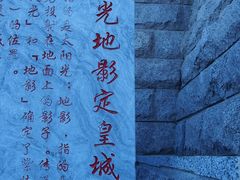 光地影定皇城
的是太阳光；地影，指的
投射在地面上的影子。传
光”和“地影”确定了
的位置。